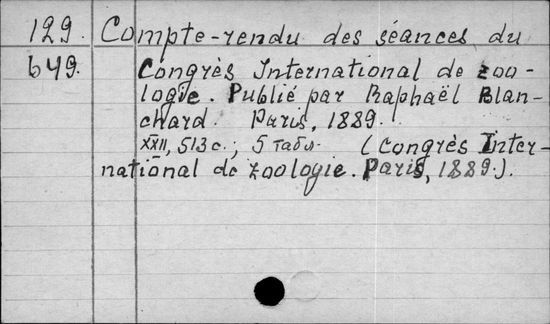 129. Compte-rendu des séances du
649. Congrès International de zoo-
logie. Publié par Raphaël Blan-
chard. Paris, 1889.
XXII, 513 с.; 5 табл. (Congrès Inter-
national de zoologie. Paris, 1889.).